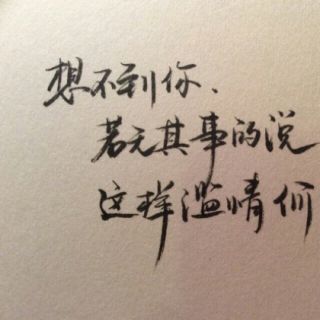 想不到你、
若无其事的说
这样滥情何